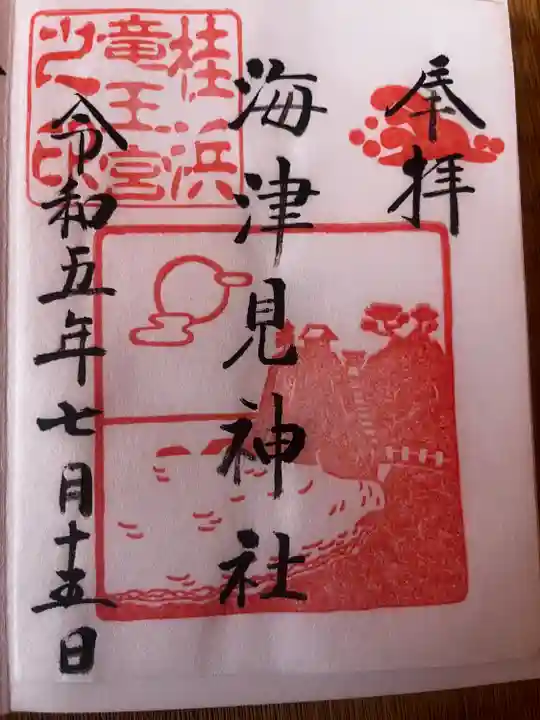 奉拝
海津見神社
令和五年七月十五日
桂浜
竜王宮
之印